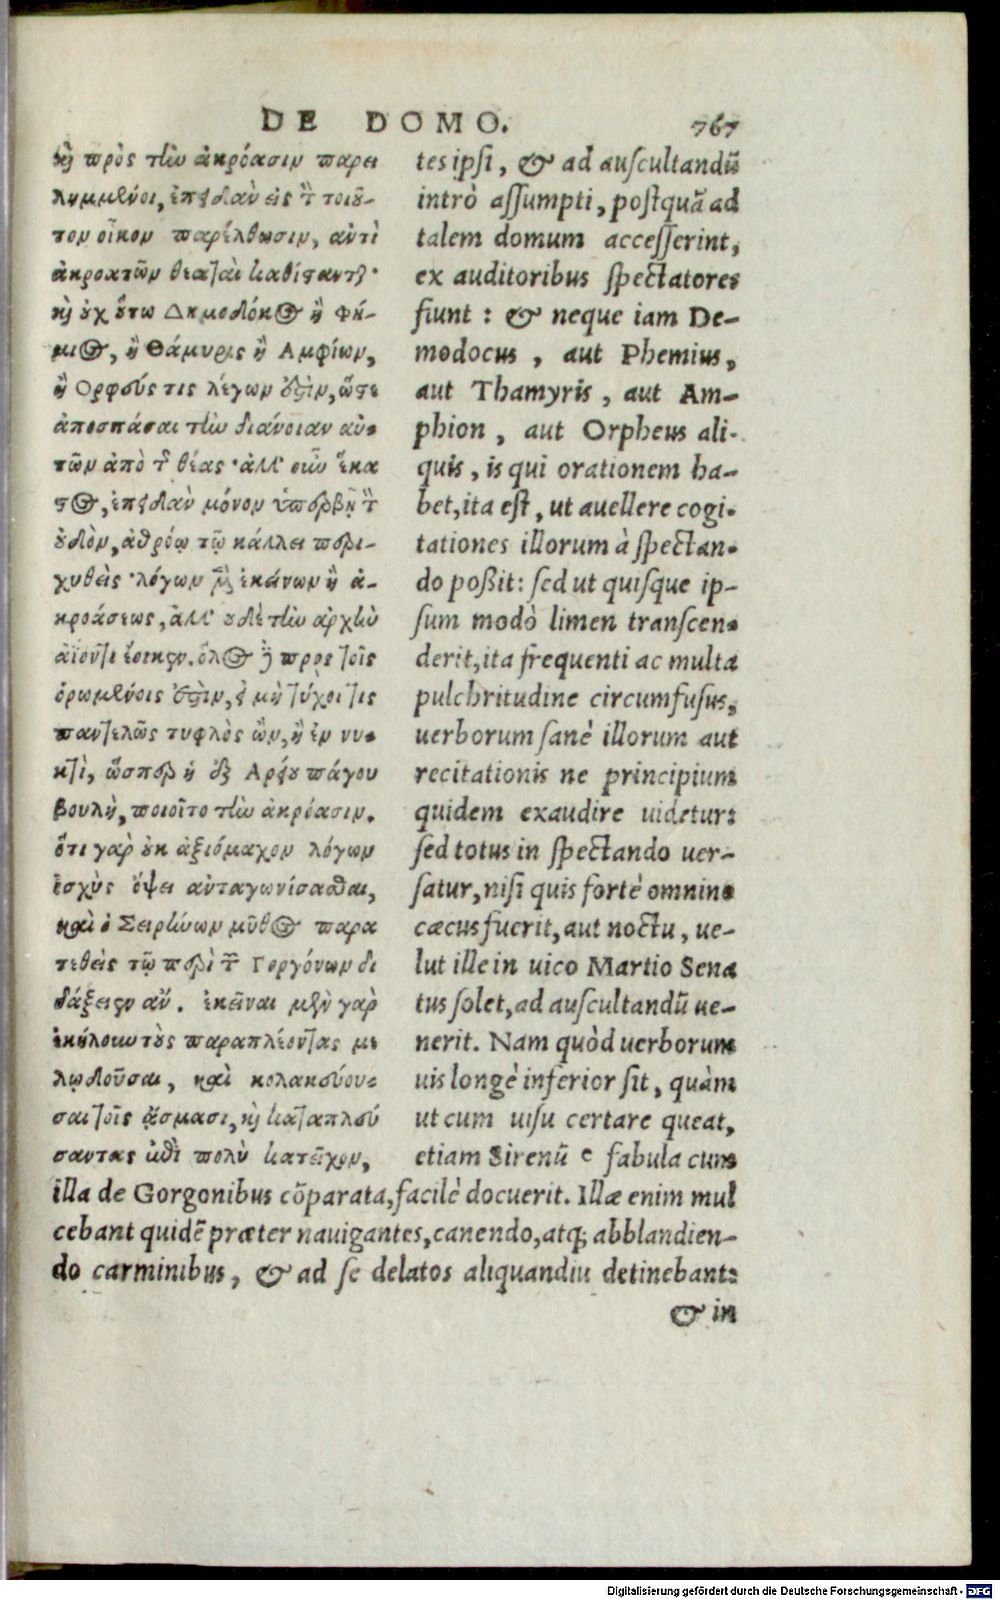 DE DOMO. 767
κỳ πρὸς τὴν ἀκρόασιν παρει
λημμένοι, ἐπειδὰν εἰς τ̀ τοιοῦ-
τον οἶκον παρέλθωσιν, ἀντὶ
ἀκροατῶν θεαταὶ καθίσανται·
κỳ οὐχ οὕτω Δημοδόκος ἢ Φή-
μιος, ἢ Θάμυρις ἢ Αμφίων,
ἢ Ορφεύς τις λέγων ὅξιν, ὥστε
ἀποσπάσαι τὴν διάνοιαν αὐ-
τῶν ἀπὸ τ̃ θέας· ἀλλ' οὖν ἕκα
στος, ἐπειδὰν μόνον ὑπερβῇ τ̀
ὀδὸν, ἀθρόῳ τῷ κάλλει περι-
χυθεὶς· λόγων μὲν ἐκείνων ἢ ἀ-
κροάσεως, ἀλλ' οὐδὲ τὴν ἀρχὴν
ἀΐοντι ἔοικεν. ὅλος δὲ πρὸς τοῖς
ὁρωμένοις ἐστὶν, εἰ μὴ τύχοι τις
παντελῶς τυφλὸς ὢν, ἢ ἐν νυ-
κτὶ, ὥσπερ ἡ ἐξ Αρείου πάγου
βουλὴ, ποιοῖτο τὴν ἀκρόασιν.
ὅτι γὰρ οὐκ ἀξιόμαχον λόγων
ἰσχὺς ὄψει ἀνταγωνίσασθαι,
καὶ ὁ Σειρήνων μῦθος παρα
τεθεὶς τῷ περὶ τ̃ Γοργόνων δι
δάξειεν ἄν. ἐκεῖναι μὲν γὰρ
ἐκήλουν τοὺς παραπλέοντας με
λῳδοῦσαι, καὶ κολακεύου-
σαι τοῖς ᾄσμασι, κỳ καταπλεύ
σαντας ἐπὶ πολὺ κατεῖχον,
tes ipsi, & ad auscultandũ
intrò assumpti, postquã ad
talem domum accesserint,
ex auditoribus spectatores
fiunt: & neque iam De-
modocus, aut Phemius,
aut Thamyris, aut Am-
phion, aut Orpheus ali-
quis, is qui orationem ha-
bet, ita est, ut auellere cogi-
tationes illorum à spectan-
do poßit: sed ut quisque ip-
sum modò limen transcen-
derit, ita frequenti ac multa
pulchritudine circumfusus,
uerborum sanè illorum aut
recitationis ne principium
quidem exaudire uidetur:
sed totus in spectando uer-
satur, nisi quis fortè omnino
cæcus fuerit, aut noctu, ue-
lut ille in uico Martio Sena
tus solet, ad auscultandũ ue-
nerit. Nam quòd uerborum
uis longè inferior sit, quàm
ut cum uisu certare queat,
etiam Sirenũ e fabula cum
illa de Gorgonibus cõparata, facilè docuerit. Illæ enim mul
cebant quidẽ præter nauigantes, canendo, atq; abblandien-
do carminibus, & ad se delatos aliquandiu detinebant:
& in
Digitalisierung gefördert durch die Deutsche Forschungsgemeinschaft - DFG